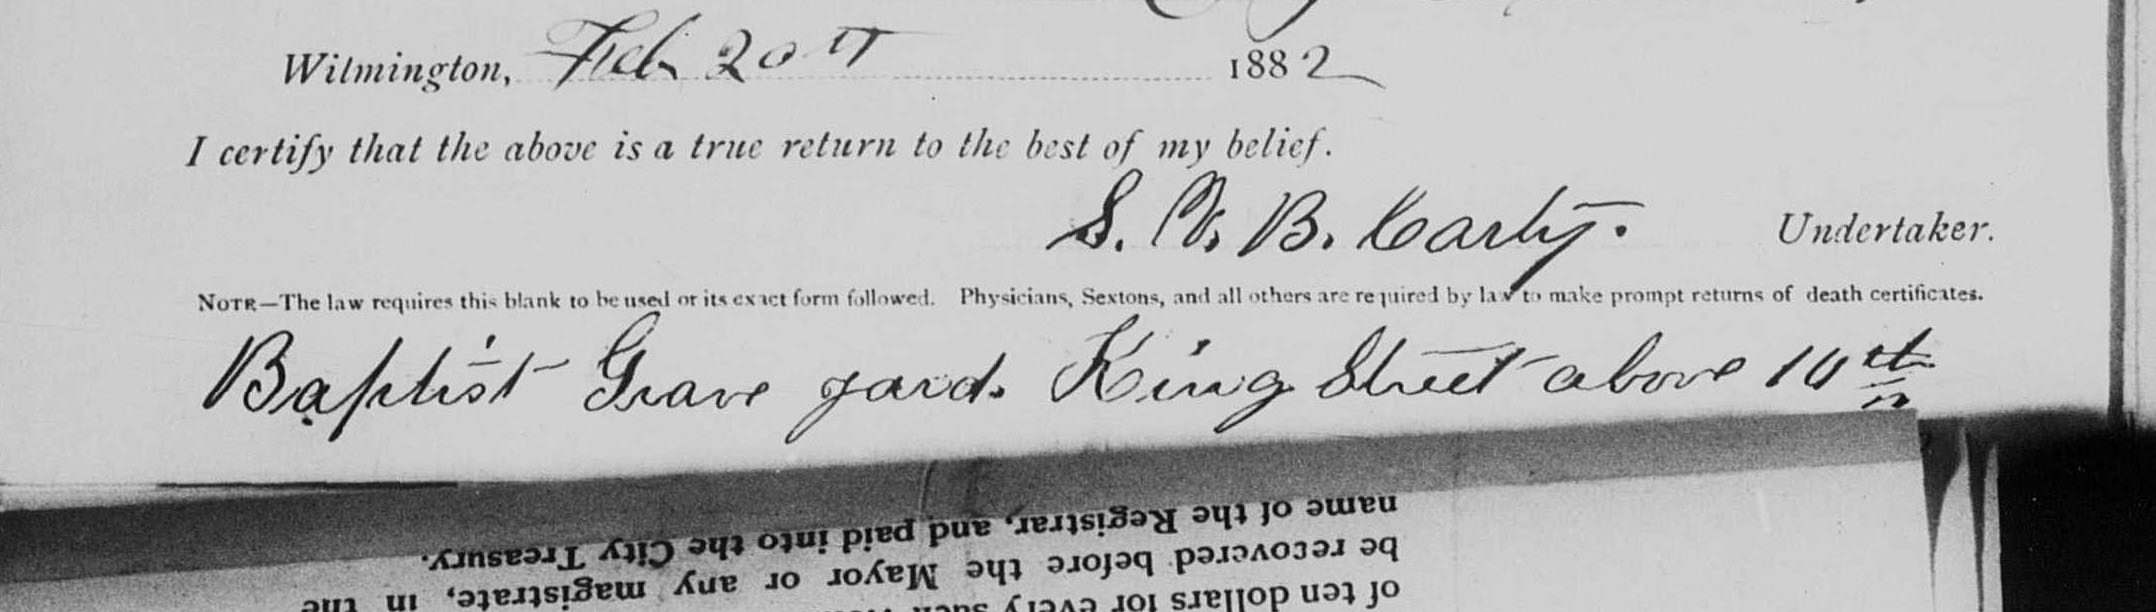 Wilmington, Feb 20th 1882
I certify that the above is a true return to the best of my belief.
S. W. B. Carty. Undertaker.
NOTE—The law requires this blank to be used or its exact form followed. Physicians, Sextons, and all others are required by law to make prompt returns of death certificates.
Baptist Grave yard. King Street above 10th
of ten dollars for every such
be recovered before the Mayor or any magistrate, in the
name of the Registrar, and paid into the City Treasury.